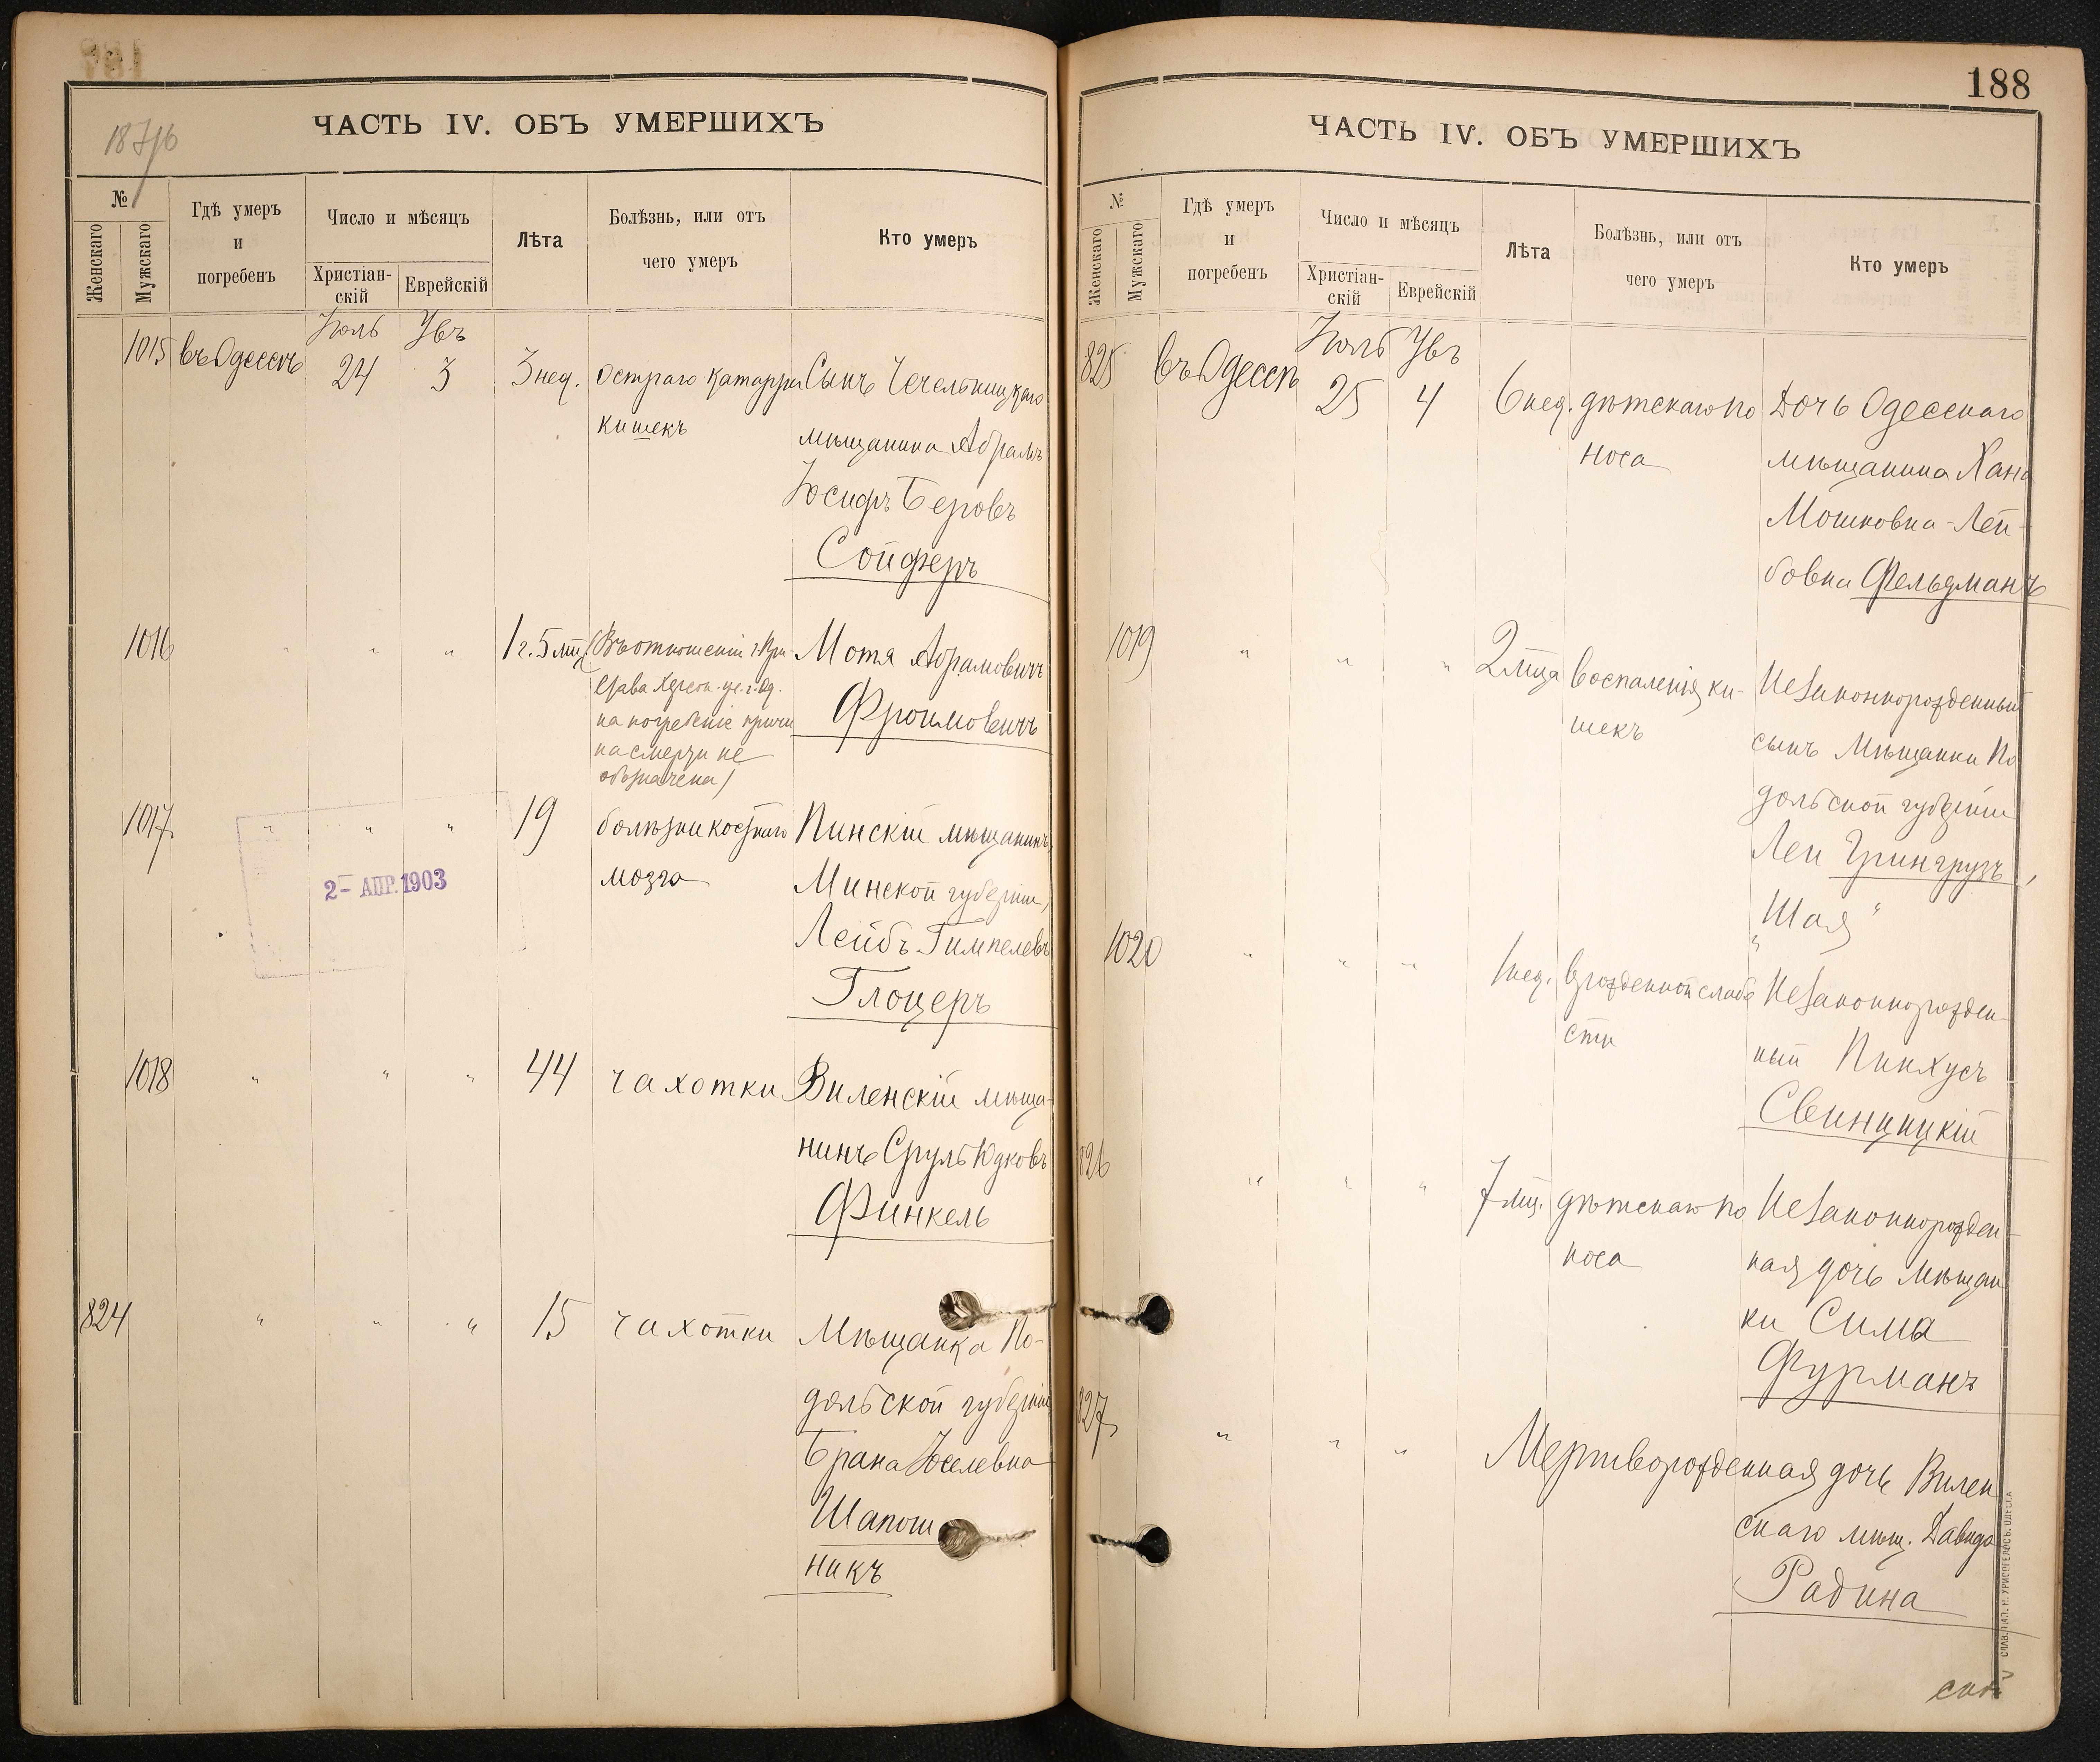 188
ЧАСТЬ IV. ОБЪ УМЕРШИХЪ
№
Женскаго
Мужскаго
Гдѣ умеръ
и
погребенъ
Число и мѣсяцъ
Христіан-
скій
Еврейскій
Лѣта
Болѣзнь, или отъ
чего умеръ
Кто умеръ
Іюль Увъ
1015 въ Одессѣ 24 3 3 нед. остраго катарра Сынъ Чечельницкаго
кишекъ
мѣщанина Абрамъ
Іосифъ Беровъ
Сойферъ
1016 " " " 1 г. 5 мц. (Въ отношеніи г. При-
става Херсон. уч. г. Од.
на погребеніе причи
на смерти не
обозначена)
Мотя Абрамовичъ
Фроимовичъ
1017 " " " 19 болѣзни костнаго Пинскій мѣщанинъ,
мозга
Минской губерніи,
Лейбъ Гимпелевъ
Глоцеръ
2- АПР. 1903
1018 " " " 44 чахотки Виленскій мѣща-
нинъ Сруль Юдковъ
Финкель
824 " " " 15 чахотки Мѣщанка По-
дольской губерніи
Брана Іоселевна
Шапош
никъ
ЧАСТЬ IV. ОБЪ УМЕРШИХЪ
№
Женскаго
Мужскаго
Гдѣ умеръ
и
погребенъ
Число и мѣсяцъ
Христіан-
скій
Еврейскій
Лѣта
Болѣзнь, или отъ
чего умеръ
Кто умеръ
Іюль Увъ
825 въ Одессѣ 25 4 6 нед. дѣтскаго по Дочь Одесскаго
носа
мѣщанина Хана
Мошковна-Лей-
бовна Фельдманъ
1019 " " " 2 мца воспаленія ки- Незаконнорожденный
шекъ
сынъ Мѣщанки По
дольской губерніи
Леи Грингрузъ,
"Шая"
1020 " " " 1 нед. врожденной слабо Незаконнорожден-
сти
ный Пинхусъ
Свиницкій
826 " " " 7 мц. дѣтскаго по Незаконнорожден-
носа
ная дочь Мѣщан
ки Сима
Фурманъ
827 " " " Мертворожденная дочь Вилен
скаго мѣщ. Давида
Радина